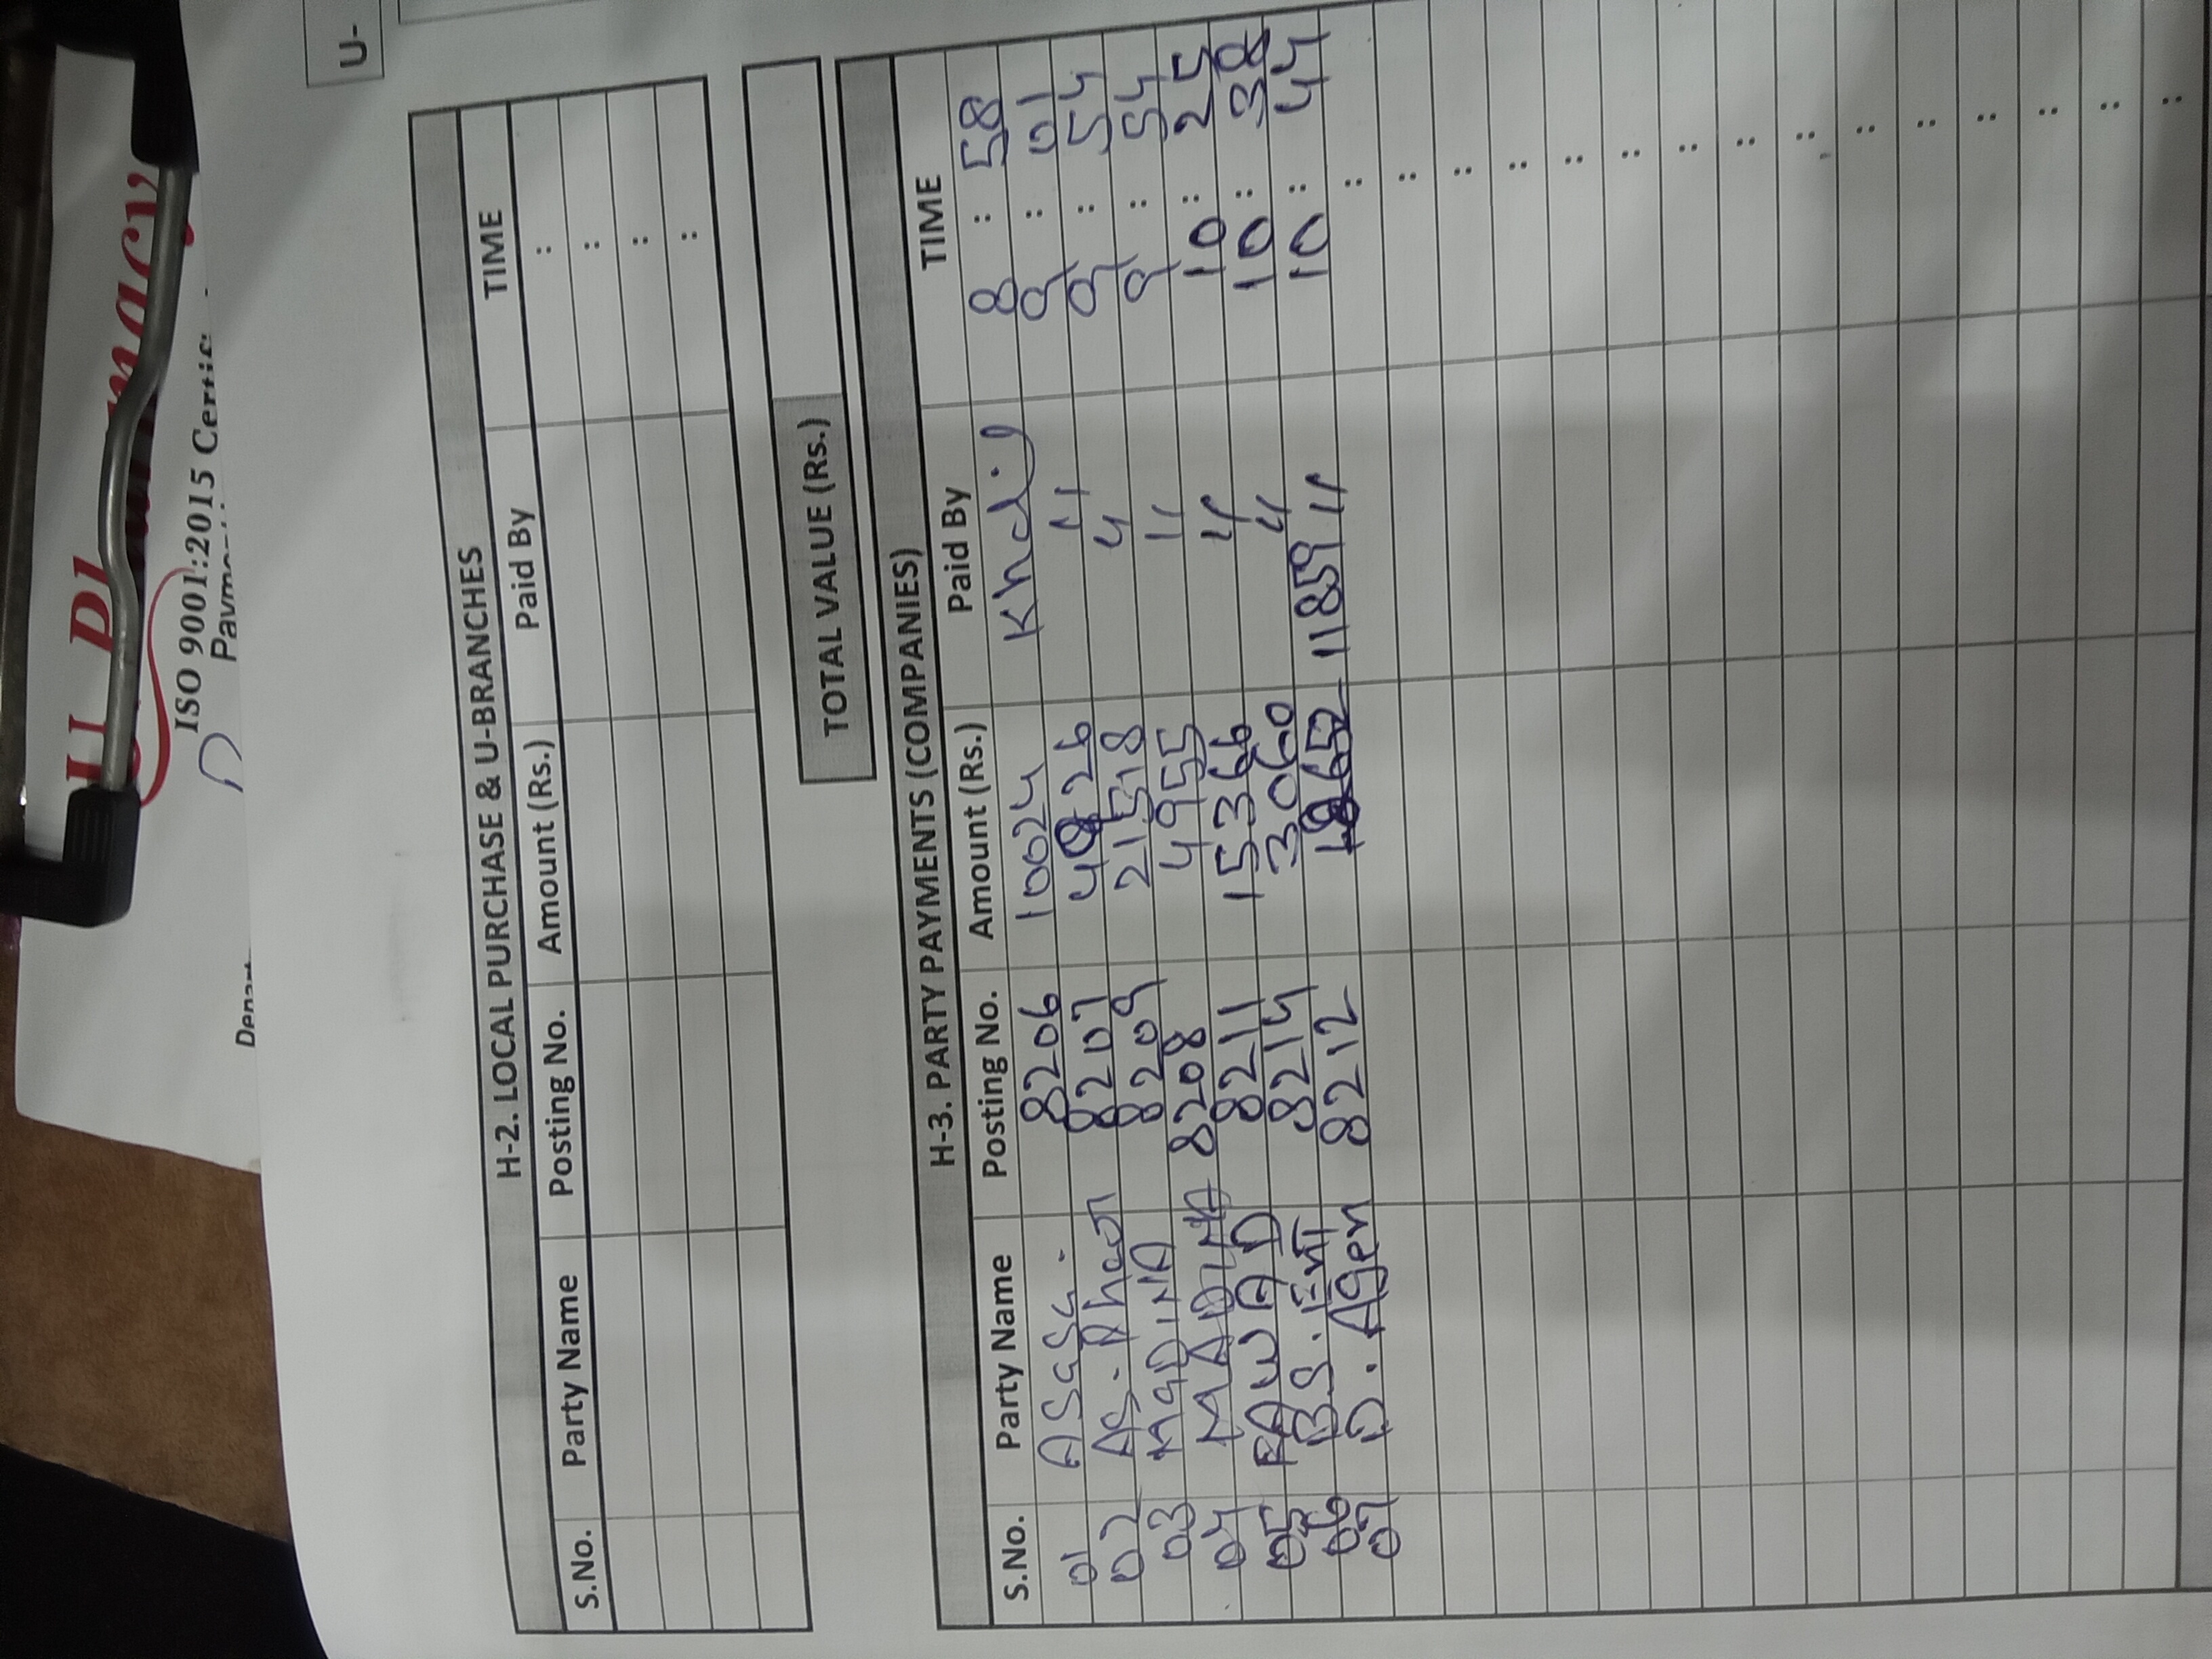 U-
ISO 9001:2015 Certific
Paym
Depart
H-2. LOCAL PURCHASE & U-BRANCHES
S.No. Party Name Posting No. Amount (Rs.) Paid By TIME
:
:
:
:
TOTAL VALUE (Rs.)
H-3. PARTY PAYMENTS (COMPANIES)
S.No. Party Name Posting No. Amount (Rs.) Paid By TIME
01 8206 10024 8 : 58
02 8207 9 : 01
03 MADINA 8209 21518 9 : 54
04 MADINA 8208 4955 11 9 : 54
05 FAWAD 8211 15366 10 : 25
06 8214 3060 10 : 38
07 D. Agen 8212 11859 11 10 : 44